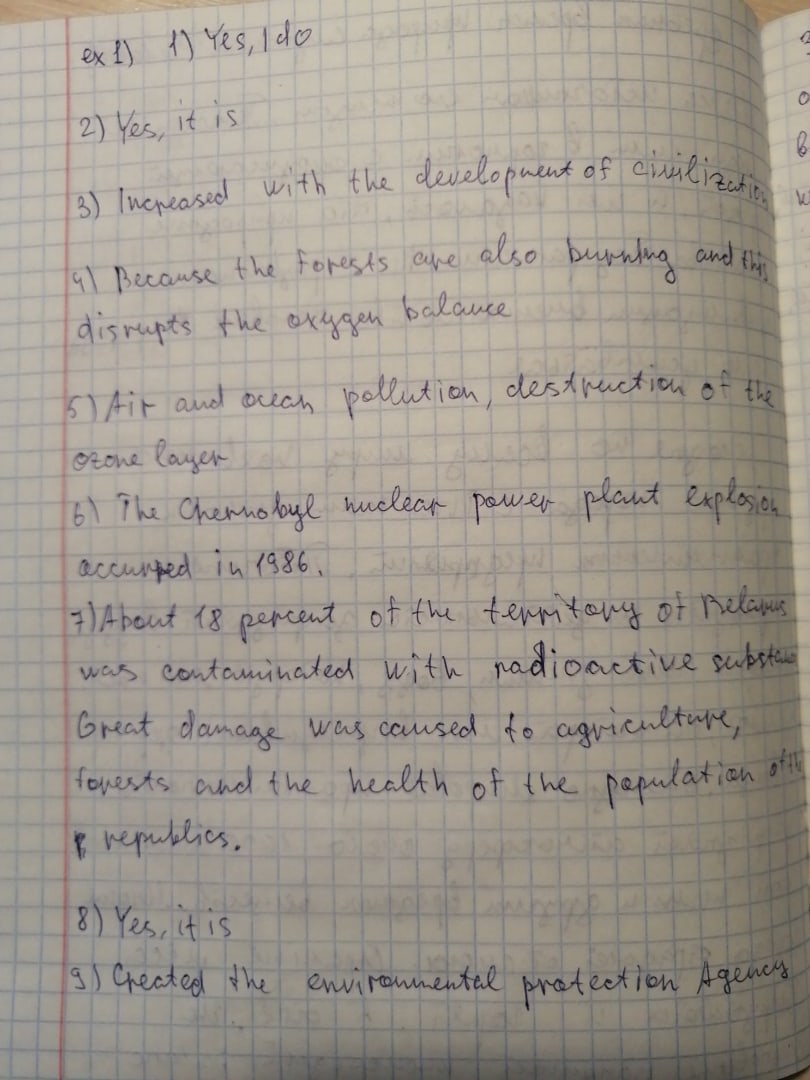 ex 1) 1) Yes, I do
2) Yes, it is
3) Increased with the development of civilization
4) Because the forests are also burning and this
disrupts the oxygen balance
5) Air and ocean pollution, destruction of the
ozone layer
6) The Chernobyl nuclear power plant explosion
occurred in 1986.
7) About 18 percent of the territory of Belarus
was contaminated with radioactive
Great damage was caused to agriculture,
forests and the health of the population of
republics.
8) Yes, it is
9) Created the environmental protection Agency